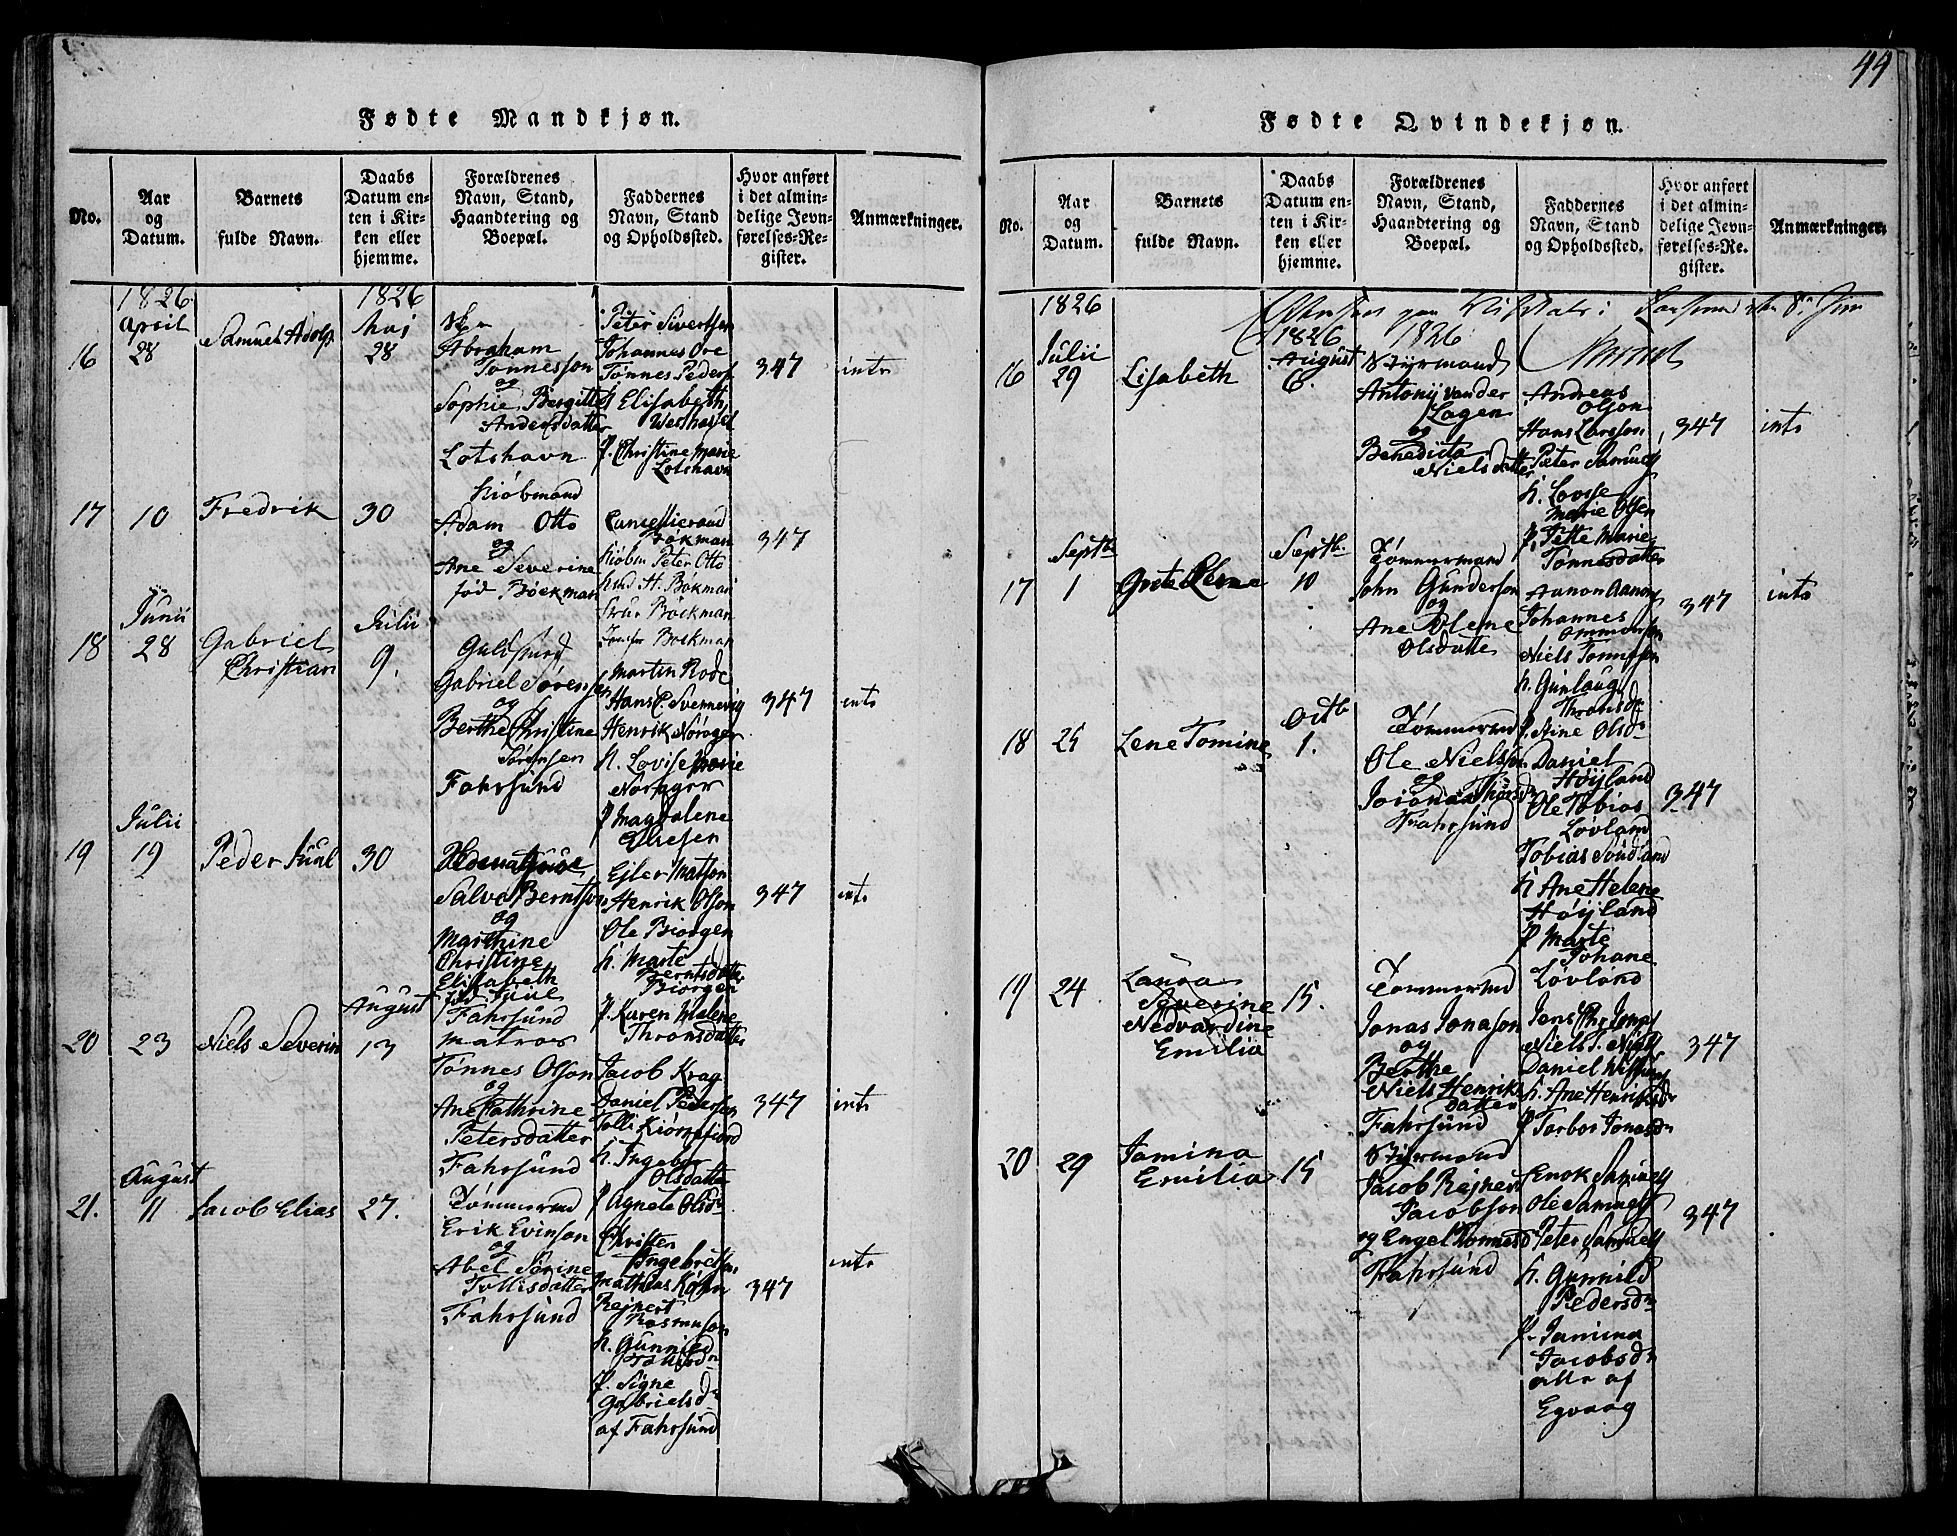 44
Fødte Mandkjøn.
No.
Aar
og
Datum.
Barnets
fulde Navn.
Daabs
Datum en-
ten i Kir-
ken eller
hjemme.
Forældrenes
Navn, Stand,
Haandtering og
Boepæl.
Faddernes
Navn, Stand
og Opholdssted.
Hvor anført
i det almin-
delige Jevn-
førelses-Re-
gister.
Anmærkninger.
1826
April
16
28
Samuel Adolp
1826
Maj
28
Abraham
Tønnessøn
og
Sophie Bergitte
Andersdatter
Lotshavn
Peter Sivertsen
Johannes Ore
Tønnes Peders
Elisabeth
P. Christine Marie
Lotshavn
347
17
10
Fredrik
30
Kiøbmand
Adam Otto
og
Ane Severine
fød Bøckman
Bøkman
Peter Otto
H. Bøkman
Bøckman
Bøckman
347
Junii
18
28
Gabriel
Christian
Julii
9.
Guldsmed
Gabriel Sørensen
og
Berthe Christine
Sørensen
Fahrsund
Martin Rode
Hans C. Svennevig
Henrik Nørager
K. Lovise Marie
Nørager
P Magdalene
347
Julii
19
19
Peder Juul
30
Salve Berntson
og
Marthine
Christine
Elisabeth
fød Juul
Fahrsund
Ejler Matson
Henrik Olson
Ole Biørgen
K. Marte
Berntsdatter
Biørgen
P. Karen Malene
Thronsdatter
347
20
23
Niels Severin
August
13
Matros
Tønnes Olson
og
Ane Cathrine
Petersdatter
Fahrsund
Jacob Krag
Daniel Pedersen
Tolli Kiørrefiord
K. Ingebor
Olsdatter
P Agnete Olsd
347
August
21.
11
Jacob Elias
27.
Tømmermd
Erik Evinson
og
Abel Serine
Tollisdatter
Fahrsund
Christen
Ingebretsen
Mathias
Rejnert
Rasmuson
K. Gunnild
Tollisd
P. Signe
Gabrielsd
af Fahrsund
347
Fødte Qvindekjøn.
No.
Aar
og
Datum.
Barnets
fulde Navn.
Daabs
Datum en-
ten i Kir-
ken eller
hjemme.
Forældrenes
Navn, Stand,
Haandtering og
Boepæl.
Faddernes
Navn, Stand
og Opholdssted.
Hvor anført
i det almin-
delige Jevn-
førelses-Re-
gister.
Anmærkninger.
1826
1826
Julii
16
29
Lisabeth
1826
August
6.
Styrmand
Antonij vander
Lagen
og
Benedicta
Nielsdatter
Andreas
Olson
Hans Larsson
Peter Samuels
K. Lovise
Marie Olsen
P. Jette Marie
Tønnesdatter
347
Septb
17
1
Grete Elene
Septb
10
Tømmermand
John Gunderson
og
Ane Olene
Olsdatte
Aanon Aanons
Johannes
Ommunsen
Niels Tønnesen
K. Gunlaug
Thronsd
P. Aine Olsd
347
18
25
Lene Tomine
Octb
1.
Tømmermd
Ole Nielsson
og
Fahrsund
Daniel
Høyland
Ole Tobias
Løvland
Tobias Sundland
K Ane Helene
Høyland
P Marte
Johane
Løvland
347
19
24
Laura
Severine
Nedvardine
Emilia
15.
Tømmermd
Jonas Jonason
og
Berthe
Niels Henriks
datter
Fahrsund
Jens Chr. Jonas
Niels J. Niels
Daniel
K. Ane Henriksd
P Torbor Jonasd
347
20
29
Jamina
Emilia
15
Styrmand
Jacob Rejnert
Jacobson
og Engel Tønnesd
Fahrsund
Enok Samuels
Ole Samuels
Peter Samuels
K. Gunnild
Pedersd
P. Jamina
Jacobsd
alle af
Egvaag
347